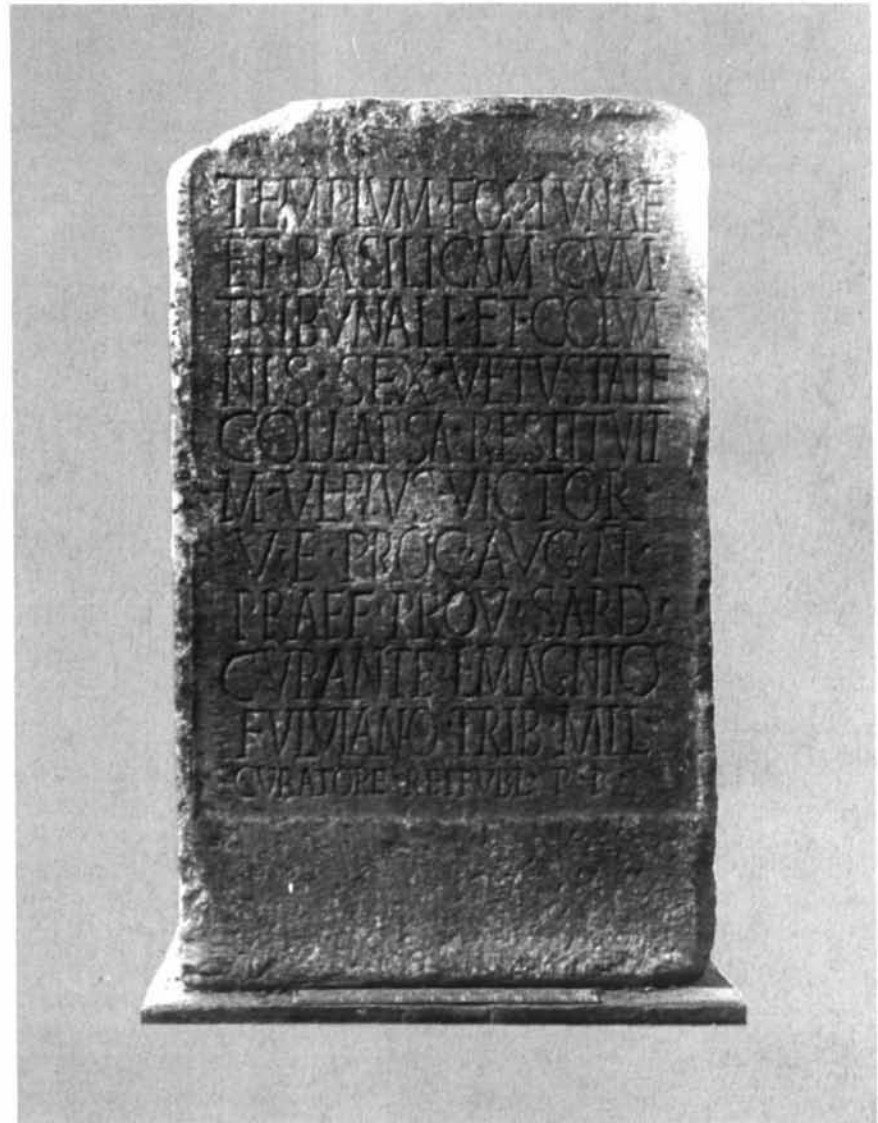 TEMPLVM·FORTVNAE
ET·BASILICAM·CVM·
TRIBVNALI·ET·COLVM
NIS·SEX·VETVSTATE
COLLAPSA·RESTITVIT
M·VLPIVS·VICTOR·
V·E·PROC·AVG·N·
PRAEF·PROV·SARD·
CVRANTE·L·MAGNIO
FVLVIANO·TRIB·MIL·
CVRATORE·REI·PVBL·